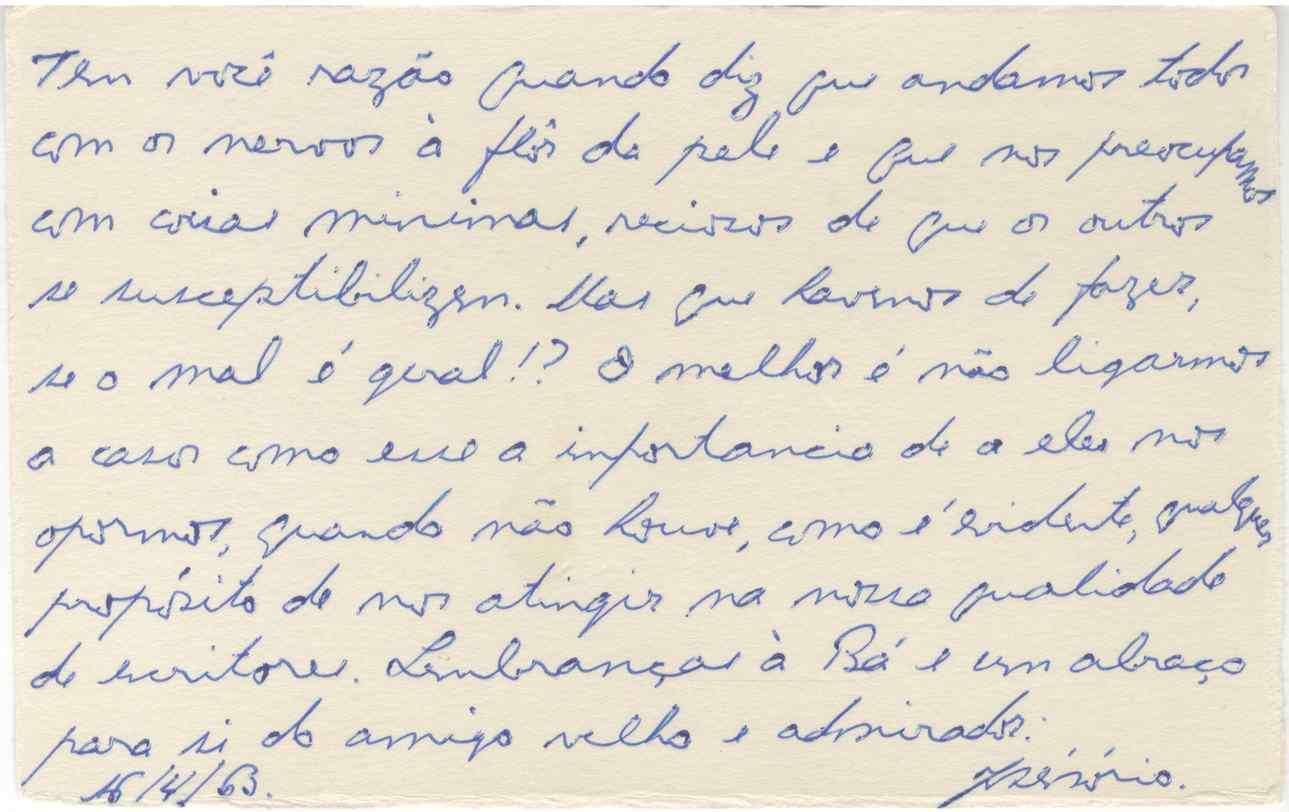 Tem você razão quando diz que andamos todos
com os nervos à flôr da pele e que nos preocupamos
com coisas minimas, reciosos de que os outros
se susceptibilizem. Mas que havemos de fazer,
se o mal é geral!? O melhor é não ligarmos
a casos como esse a importancia de a eles nos
opormos, quando não houve, como é evidente, qualquer
propósito de nos atingir na nossa qualidade
de escritores. Lembranças à Bá e um abraço
para si do amigo velho e admirador.
16/4/63.